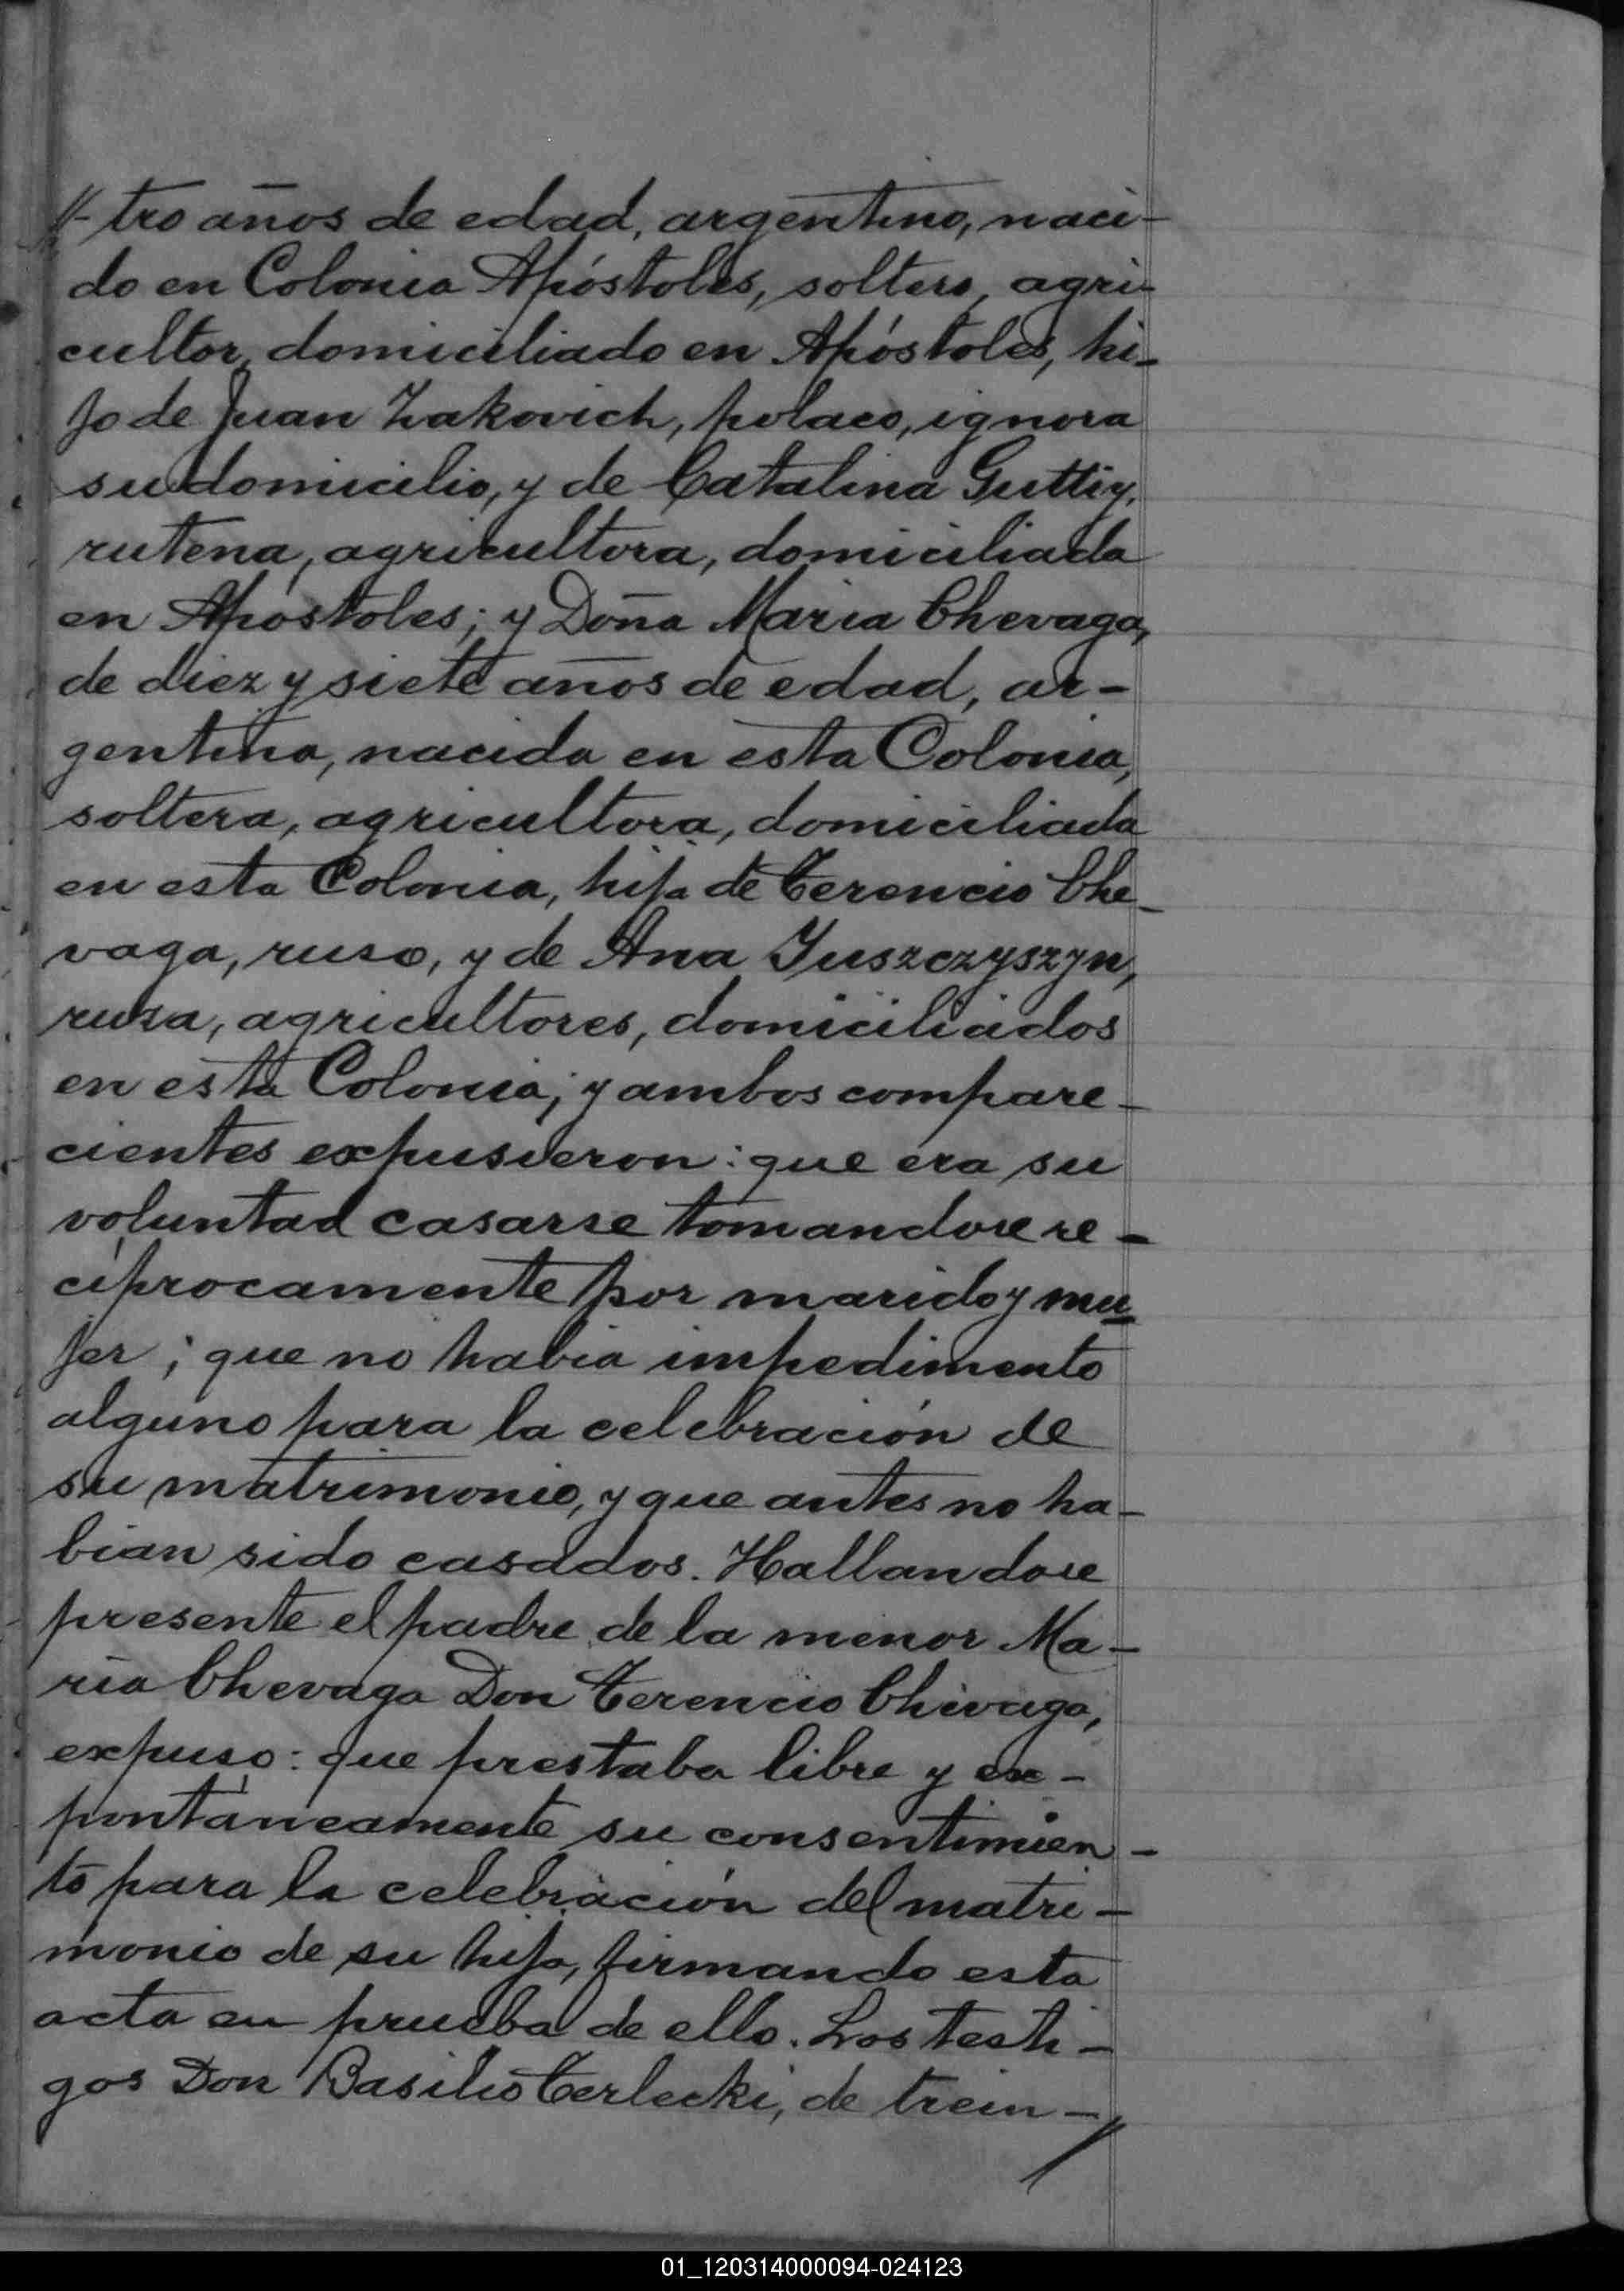 //- tro años de edad, argentino, naci-
do en Colonia Apóstoles, soltero, agri-
cultor, domiciliado en Apóstoles, hi-
jo de Juan Zakovich, polaco, ignora
su domicilio, y de Catalina Guttiy,
rutena, agricultora, domiciliada
en Apóstoles; y Doña Maria Chevaga,
de diez y siete años de edad, ar-
gentina, nacida en esta Colonia,
soltera, agricultora, domiciliada
en esta Colonia, hija de Terencio Che-
vaga, ruso, y de Ana Juszczyszyn,
rusa, agricultores, domiciliados
en esta Colonia; y ambos compare-
cientes expusieron: que era su
voluntad casarse tomandose re-
ciprocamente por marido y mu-
jer; que no habia impedimento
alguno para la celebración de
su matrimonio, y que antes no ha-
bian sido casados. Hallandose
presente el padre de la menor Ma-
ria Chevaga Don Terencio Chivaga,
expuso: que prestaba libre y ex-
pontáneamente su consentimien-
to para la celebración del matri-
monio de su hija, firmando esta
acta en prueba de ello. Los testi-
gos Don Basilio Terlecki, de trein-//
01_120314000094-024123